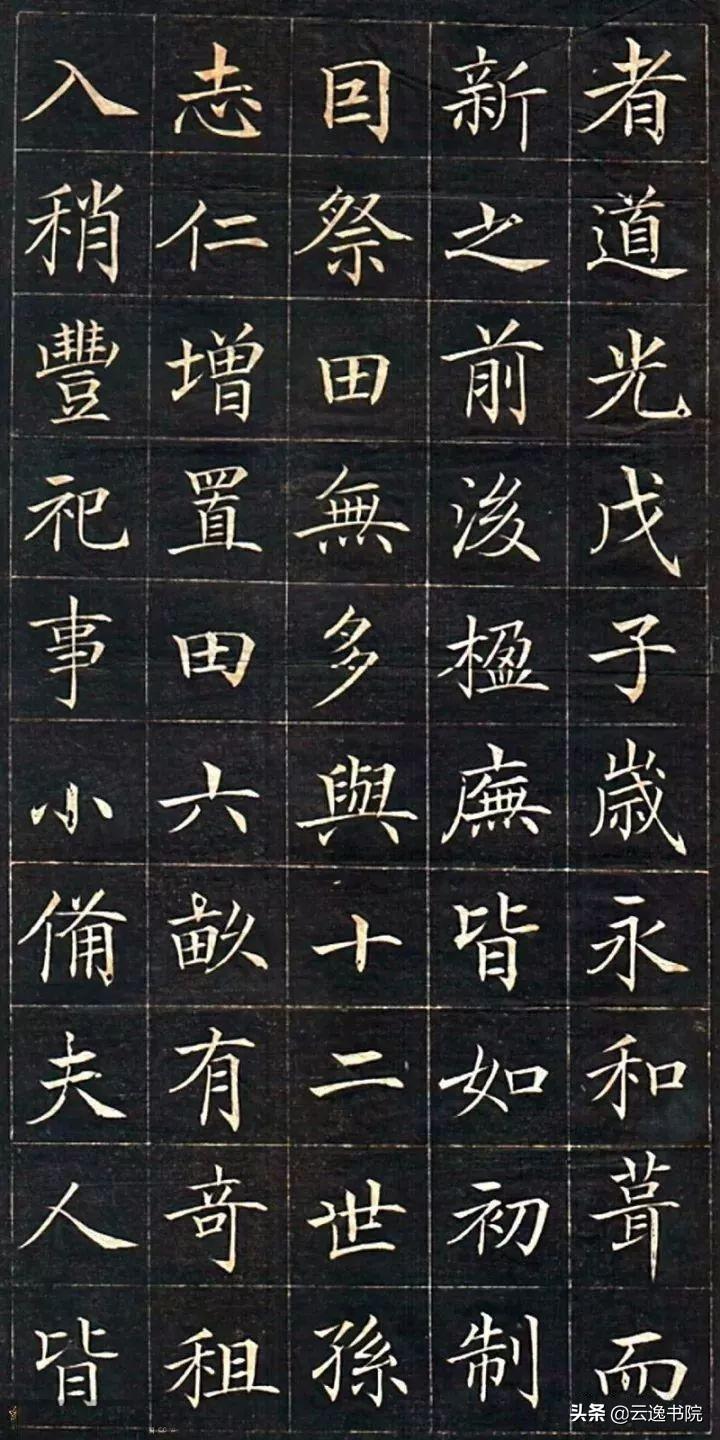 者道光戊子歲永和葺而
新之前後楹廡皆如初制
囙祭田無多與十二世孫
志仁增置田六畝有奇租
入稍豐祀事小備夫人皆
头条 @云逸书院